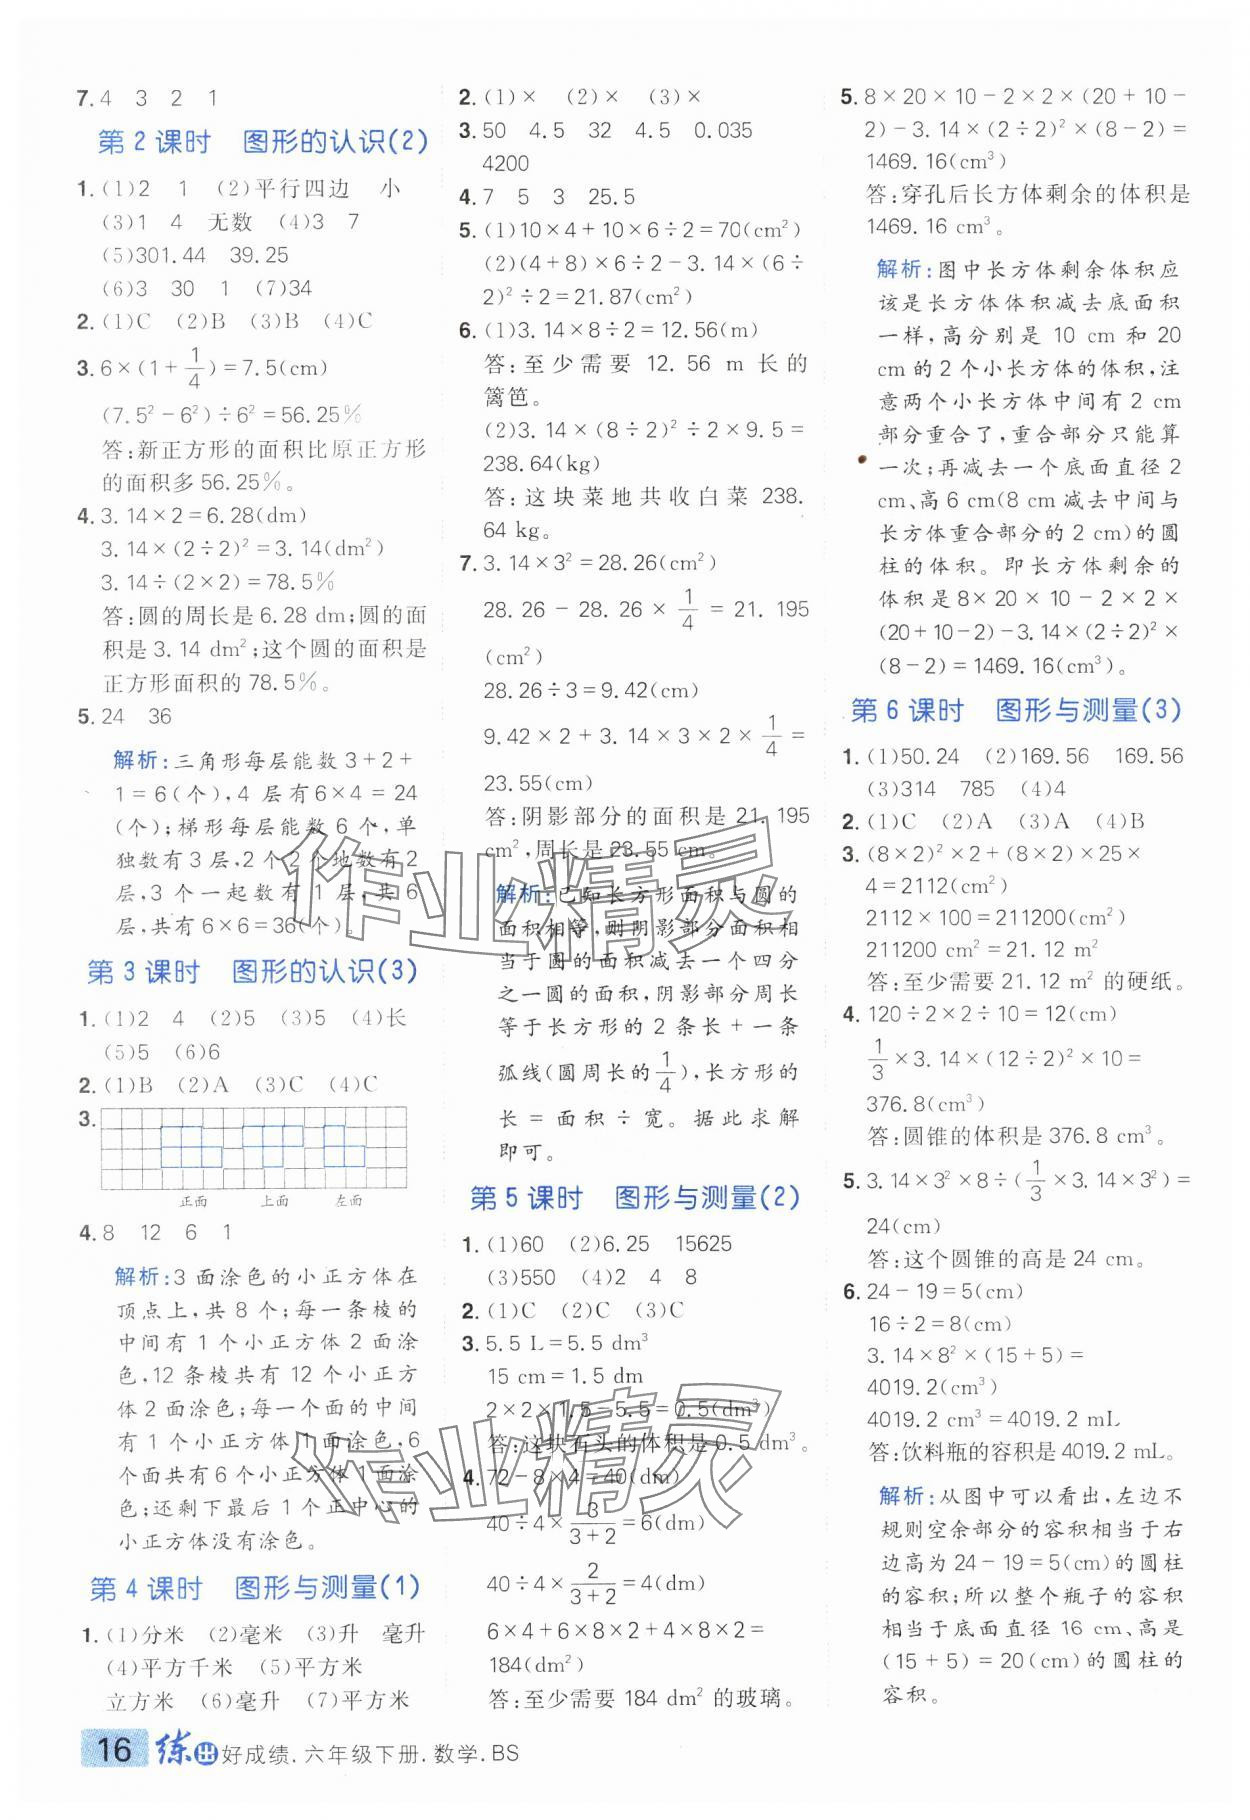 7. 4 3 2 1
第 2 课时 图形的认识(2)
1. (1)2 1 (2)平行四边 小
(3)1 4 无数 (4)3 7
(5)301.44 39.25
(6)3 30 1 (7)34
2. (1)C (2)B (3)B (4)C
3. 6×(1+1/4)=7.5(cm)
(7.5²-6²)÷6²=56.25%
答:新正方形的面积比原正方形
的面积多56.25%。
4. 3.14×2=6.28(dm)
3.14×(2÷2)²=3.14(dm²)
3.14÷(2×2)=78.5%
答:圆的周长是6.28 dm;圆的面
积是3.14 dm²;这个圆的面积是
正方形面积的78.5%。
5. 24 36
解析:三角形每层能数3+2+
1=6(个),4 层有6×4=24
(个);梯形每层能数 6 个,单
独数有 3 层,2 个 2 个地数有 2
层,3 个一起数有 1 层,共 6
层,共有6×6=36(个)。
第 3 课时 图形的认识(3)
1. (1)2 4 (2)5 (3)5 (4)长
(5)5 (6)6
2. (1)B (2)A (3)C (4)C
3.
正面 上面 左面
4. 8 12 6 1
解析:3 面涂色的小正方体在
顶点上,共 8 个;每一条棱的
中间有 1 个小正方体 2 面涂
色,12 条棱共有 12 个小正方
体 2 面涂色;每一个面的中间
有 1 个小正方体 1 面涂色,6
个面共有 6 个小正方体 1 面涂
色;还剩下最后 1 个正中心的
小正方体没有涂色。
第 4 课时 图形与测量(1)
1. (1)分米 (2)毫米 (3)升 毫升
(4)平方千米 (5)平方米
立方米 (6)毫升 (7)平方米
2. (1)× (2)× (3)×
3. 50 4.5 32 4.5 0.035
4200
4. 7 5 3 25.5
5. (1)10×4+10×6÷2=70(cm²)
(2)(4+8)×6÷2-3.14×(6÷
2)²÷2=21.87(cm²)
6. (1)3.14×8÷2=12.56(m)
答:至少需要 12.56 m 长的
篱笆。
(2)3.14×(8÷2)²÷2×9.5=
238.64(kg)
答:这块菜地共收白菜 238.
64 kg。
7. 3.14×3²=28.26(cm²)
28.26-28.26×1/4=21.195
(cm²)
28.26÷3=9.42(cm)
9.42×2+3.14×3×2×1/4=
23.55(cm)
答:阴影部分的面积是 21.195
cm²,周长是 23.55 cm。
解析:已知长方形面积与圆的
面积相等,则阴影部分面积相
当于圆的面积减去一个四分
之一圆的面积,阴影部分周长
等于长方形的 2 条长+一条
弧线(圆周长的1/4),长方形的
长=面积÷宽。据此求解
即可。
第 5 课时 图形与测量(2)
1. (1)60 (2)6.25 15625
(3)550 (4)2 4 8
2. (1)C (2)C (3)C
3. 5.5 L=5.5 dm³
15 cm=1.5 dm
2×2×1.5-5.5=0.5(dm³)
答:这块石头的体积是 0.5 dm³。
4. 72-8×4=40(dm)
40÷4×3/(3+2)=6(dm)
40÷4×2/(3+2)=4(dm)
6×4+6×8×2+4×8×2=
184(dm²)
答:至少需要 184 dm² 的玻璃。
5. 8×20×10-2×2×(20+10-
2)-3.14×(2÷2)²×(8-2)=
1469.16(cm³)
答:穿孔后长方体剩余的体积是
1469.16 cm³。
解析:图中长方体剩余体积应
该是长方体体积减去底面积
一样,高分别是 10 cm 和 20
cm 的 2 个小长方体的体积,注
意两个小长方体中间有 2 cm
部分重合了,重合部分只能算
一次;再减去一个底面直径 2
cm、高 6 cm(8 cm 减去中间与
长方体重合部分的 2 cm)的圆
柱的体积。即长方体剩余的
体积是8×20×10-2×2×
(20+10-2)-3.14×(2÷2)²×
(8-2)=1469.16(cm³)。
第 6 课时 图形与测量(3)
1. (1)50.24 (2)169.56 169.56
(3)314 785 (4)4
2. (1)C (2)A (3)A (4)B
3. (8×2)²×2+(8×2)×25×
4=2112(cm²)
2112×100=211200(cm²)
211200 cm²=21.12 m²
答:至少需要 21.12 m² 的硬纸。
4. 120÷2×2÷10=12(cm)
1/3×3.14×(12÷2)²×10=
376.8(cm³)
答:圆锥的体积是 376.8 cm³。
5. 3.14×3²×8÷(1/3×3.14×3²)=
24(cm)
答:这个圆锥的高是 24 cm。
6. 24-19=5(cm)
16÷2=8(cm)
3.14×8²×(15+5)=
4019.2(cm³)
4019.2 cm³=4019.2 mL
答:饮料瓶的容积是 4019.2 mL。
解析:从图中可以看出,左边不
规则空余部分的容积相当于右
边高为 24-19=5(cm)的圆柱
的容积;所以整个瓶子的容积
相当于底面直径 16 cm、高是
(15+5)=20(cm)的圆柱的
容积。
作业精灵
作业精灵
16 练出好成绩.六年级下册.数学.BS